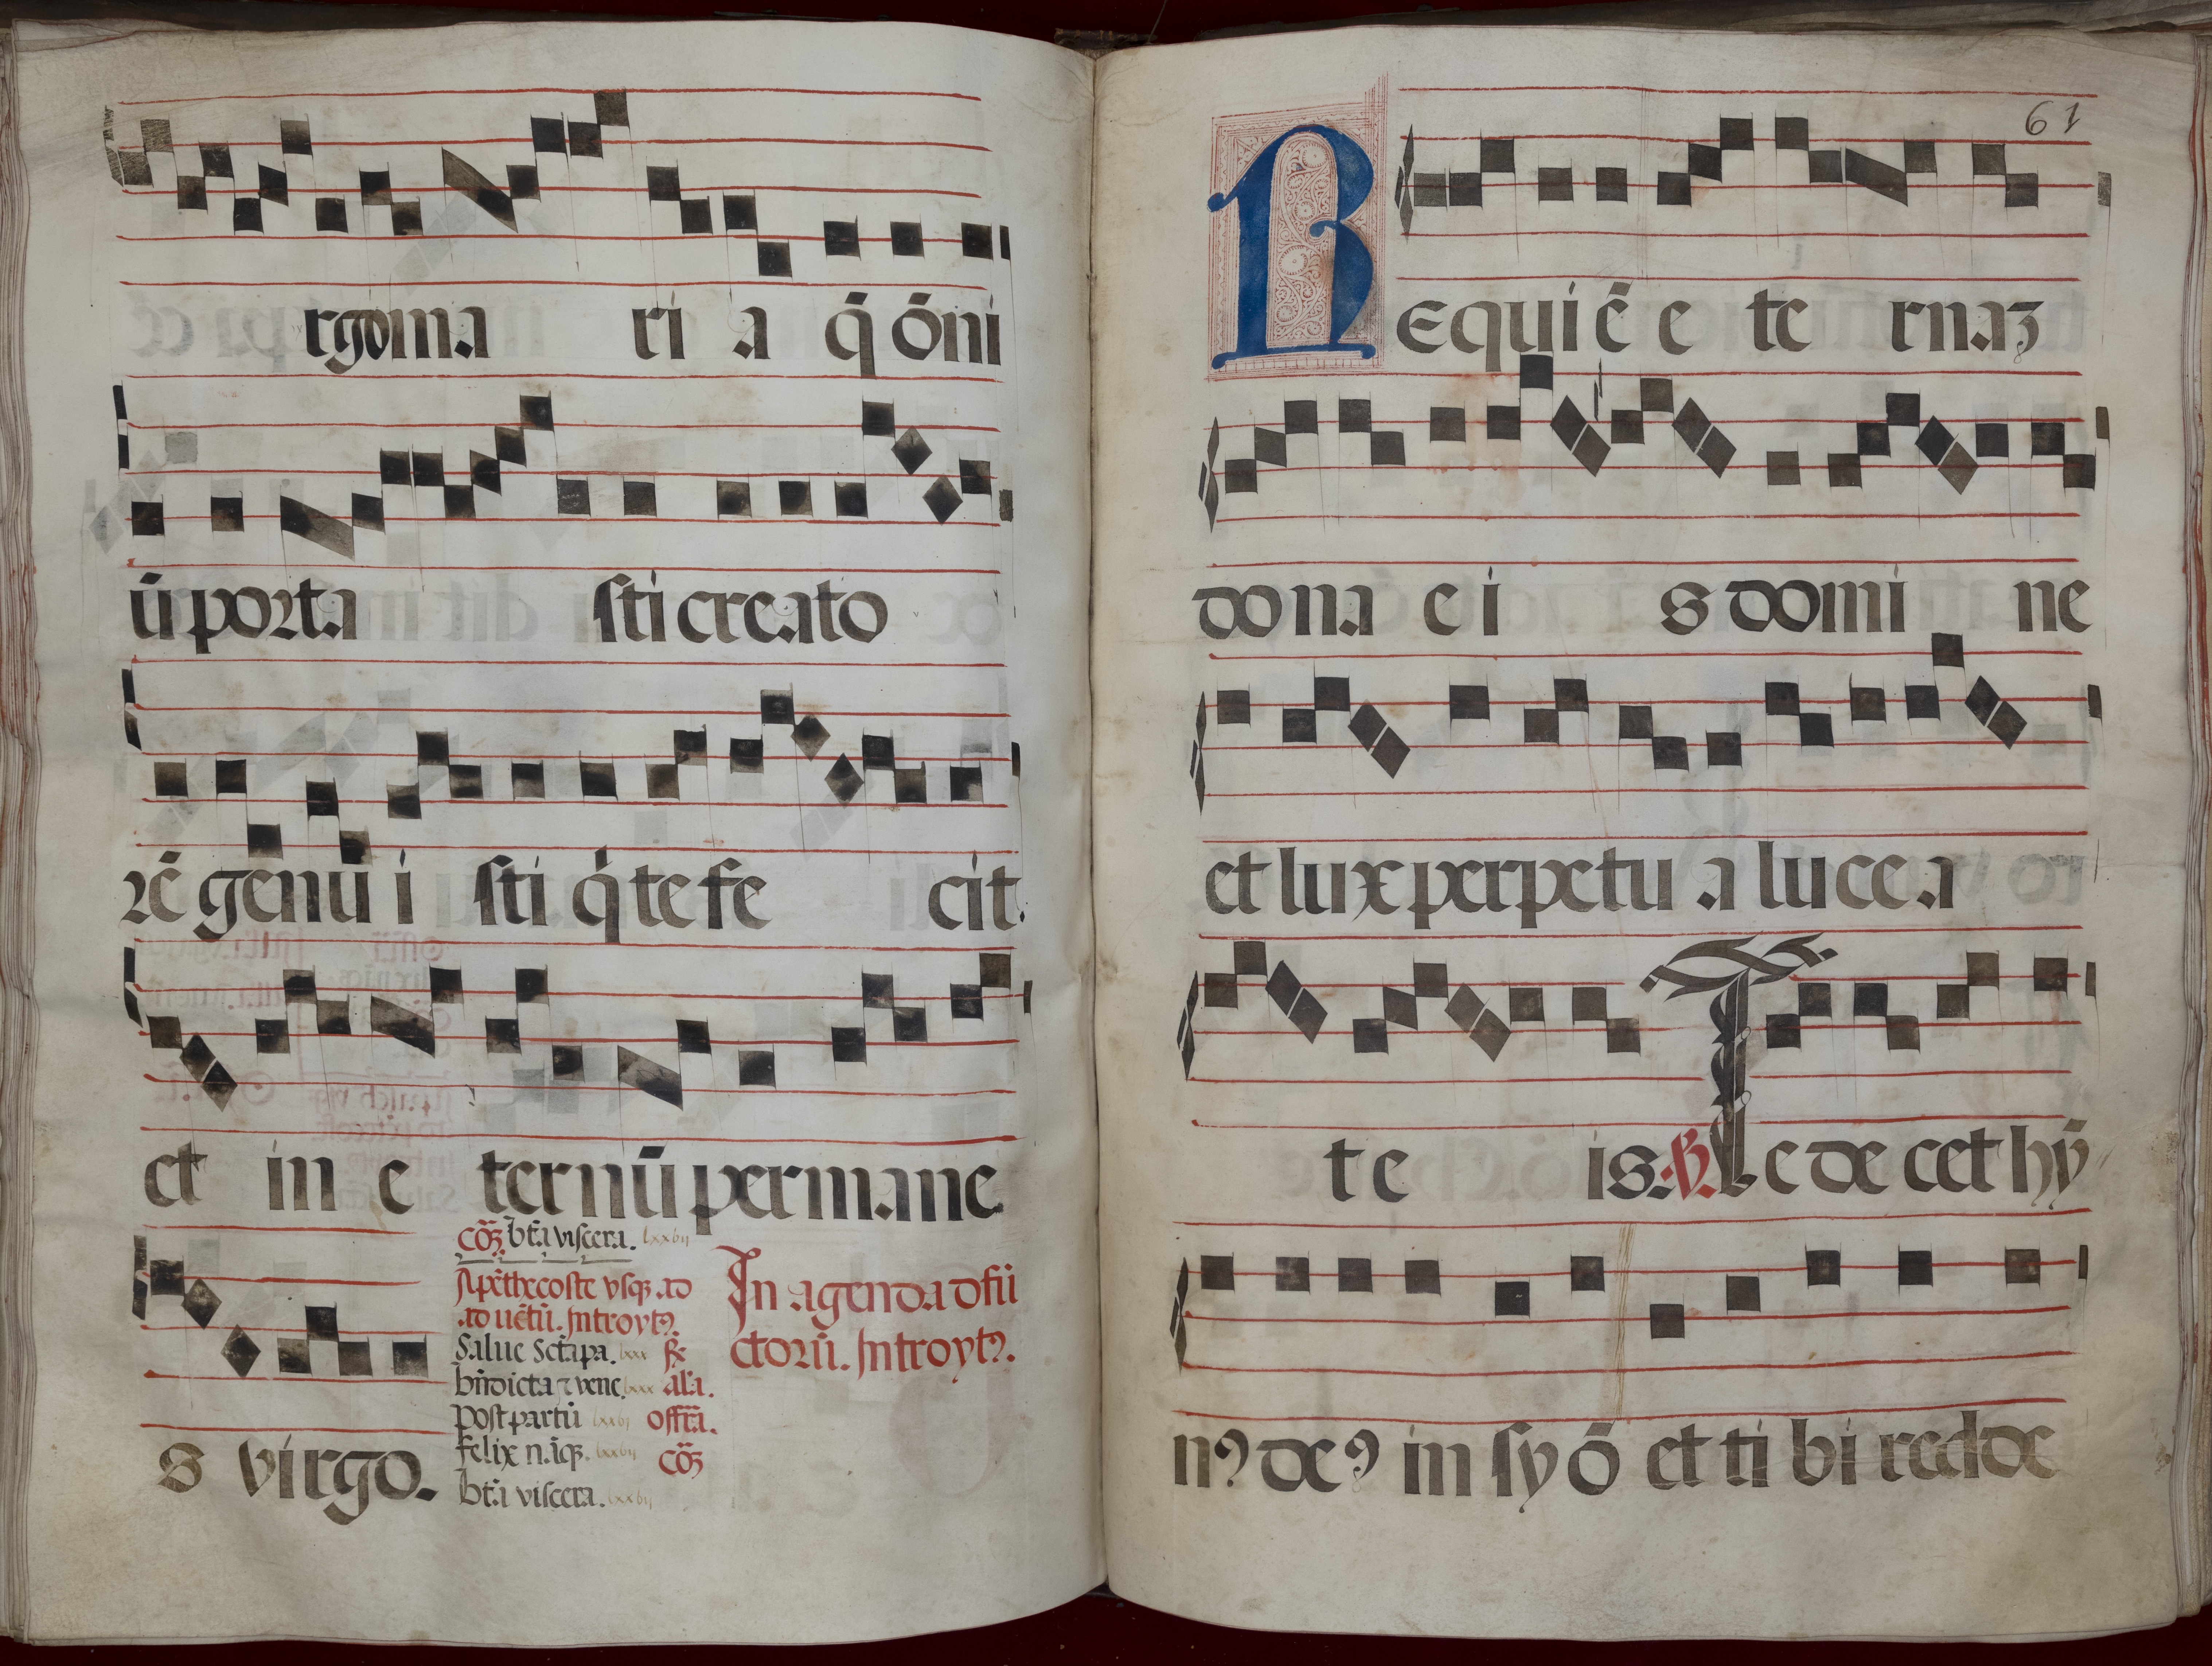 rgo ma ri a q̄ ōni
ū porta sti creato
rē genu i sti q̇ te fe cit.
et in e ternū permane
s virgo.
cōꝫ bt̄a viscera. lxxvij
A pēthecoste vsqꝫ ad
aduētū. Introytꝰ.
Salue sctāpa. lxxx
bn̄dicta ⁊ vene. lxxx al̄a.
post partū lxxvj offr̄a.
felix n.īqꝫ. lxxvij cōꝫ
bt̄a viscera. lxxvij
In agenda dfū
ctorū. Introytꝰ.
61
Requiē e te rnaꝫ
do na e i s domi ne
et lux perpetu a luce a
te is. ℣. Te decet hȳ
nꝰ deꝰ in syō et ti bi redde